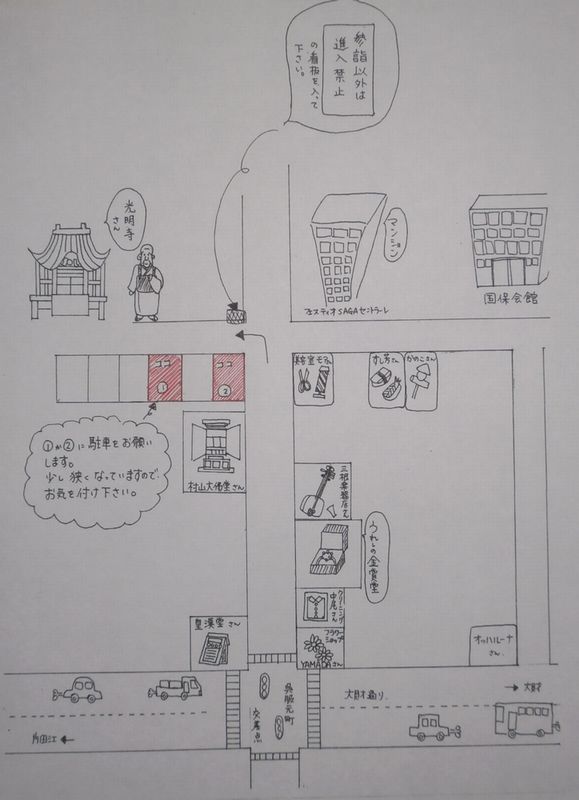 参詣以外は
進入禁止
の看板を入って
下さい。
光明寺
さん
マンション
フェスティオSAGAセントラーレ
国保会館
ココ
①
ココ
②
美容室モアさん
すし芳さん
かのこさん
①か②に駐車をお願い
します。
少し狭くなっていますので
お気を付け下さい。
村山大仏堂さん
三根楽器店さん
うれしの金賞堂
クリーニング
中尾さん
フラワー
ショップ
YAMADAさん
皇漢堂さん
オッハルーナ
さん
呉服元町
交差点
大財通り
→大財
片田江←